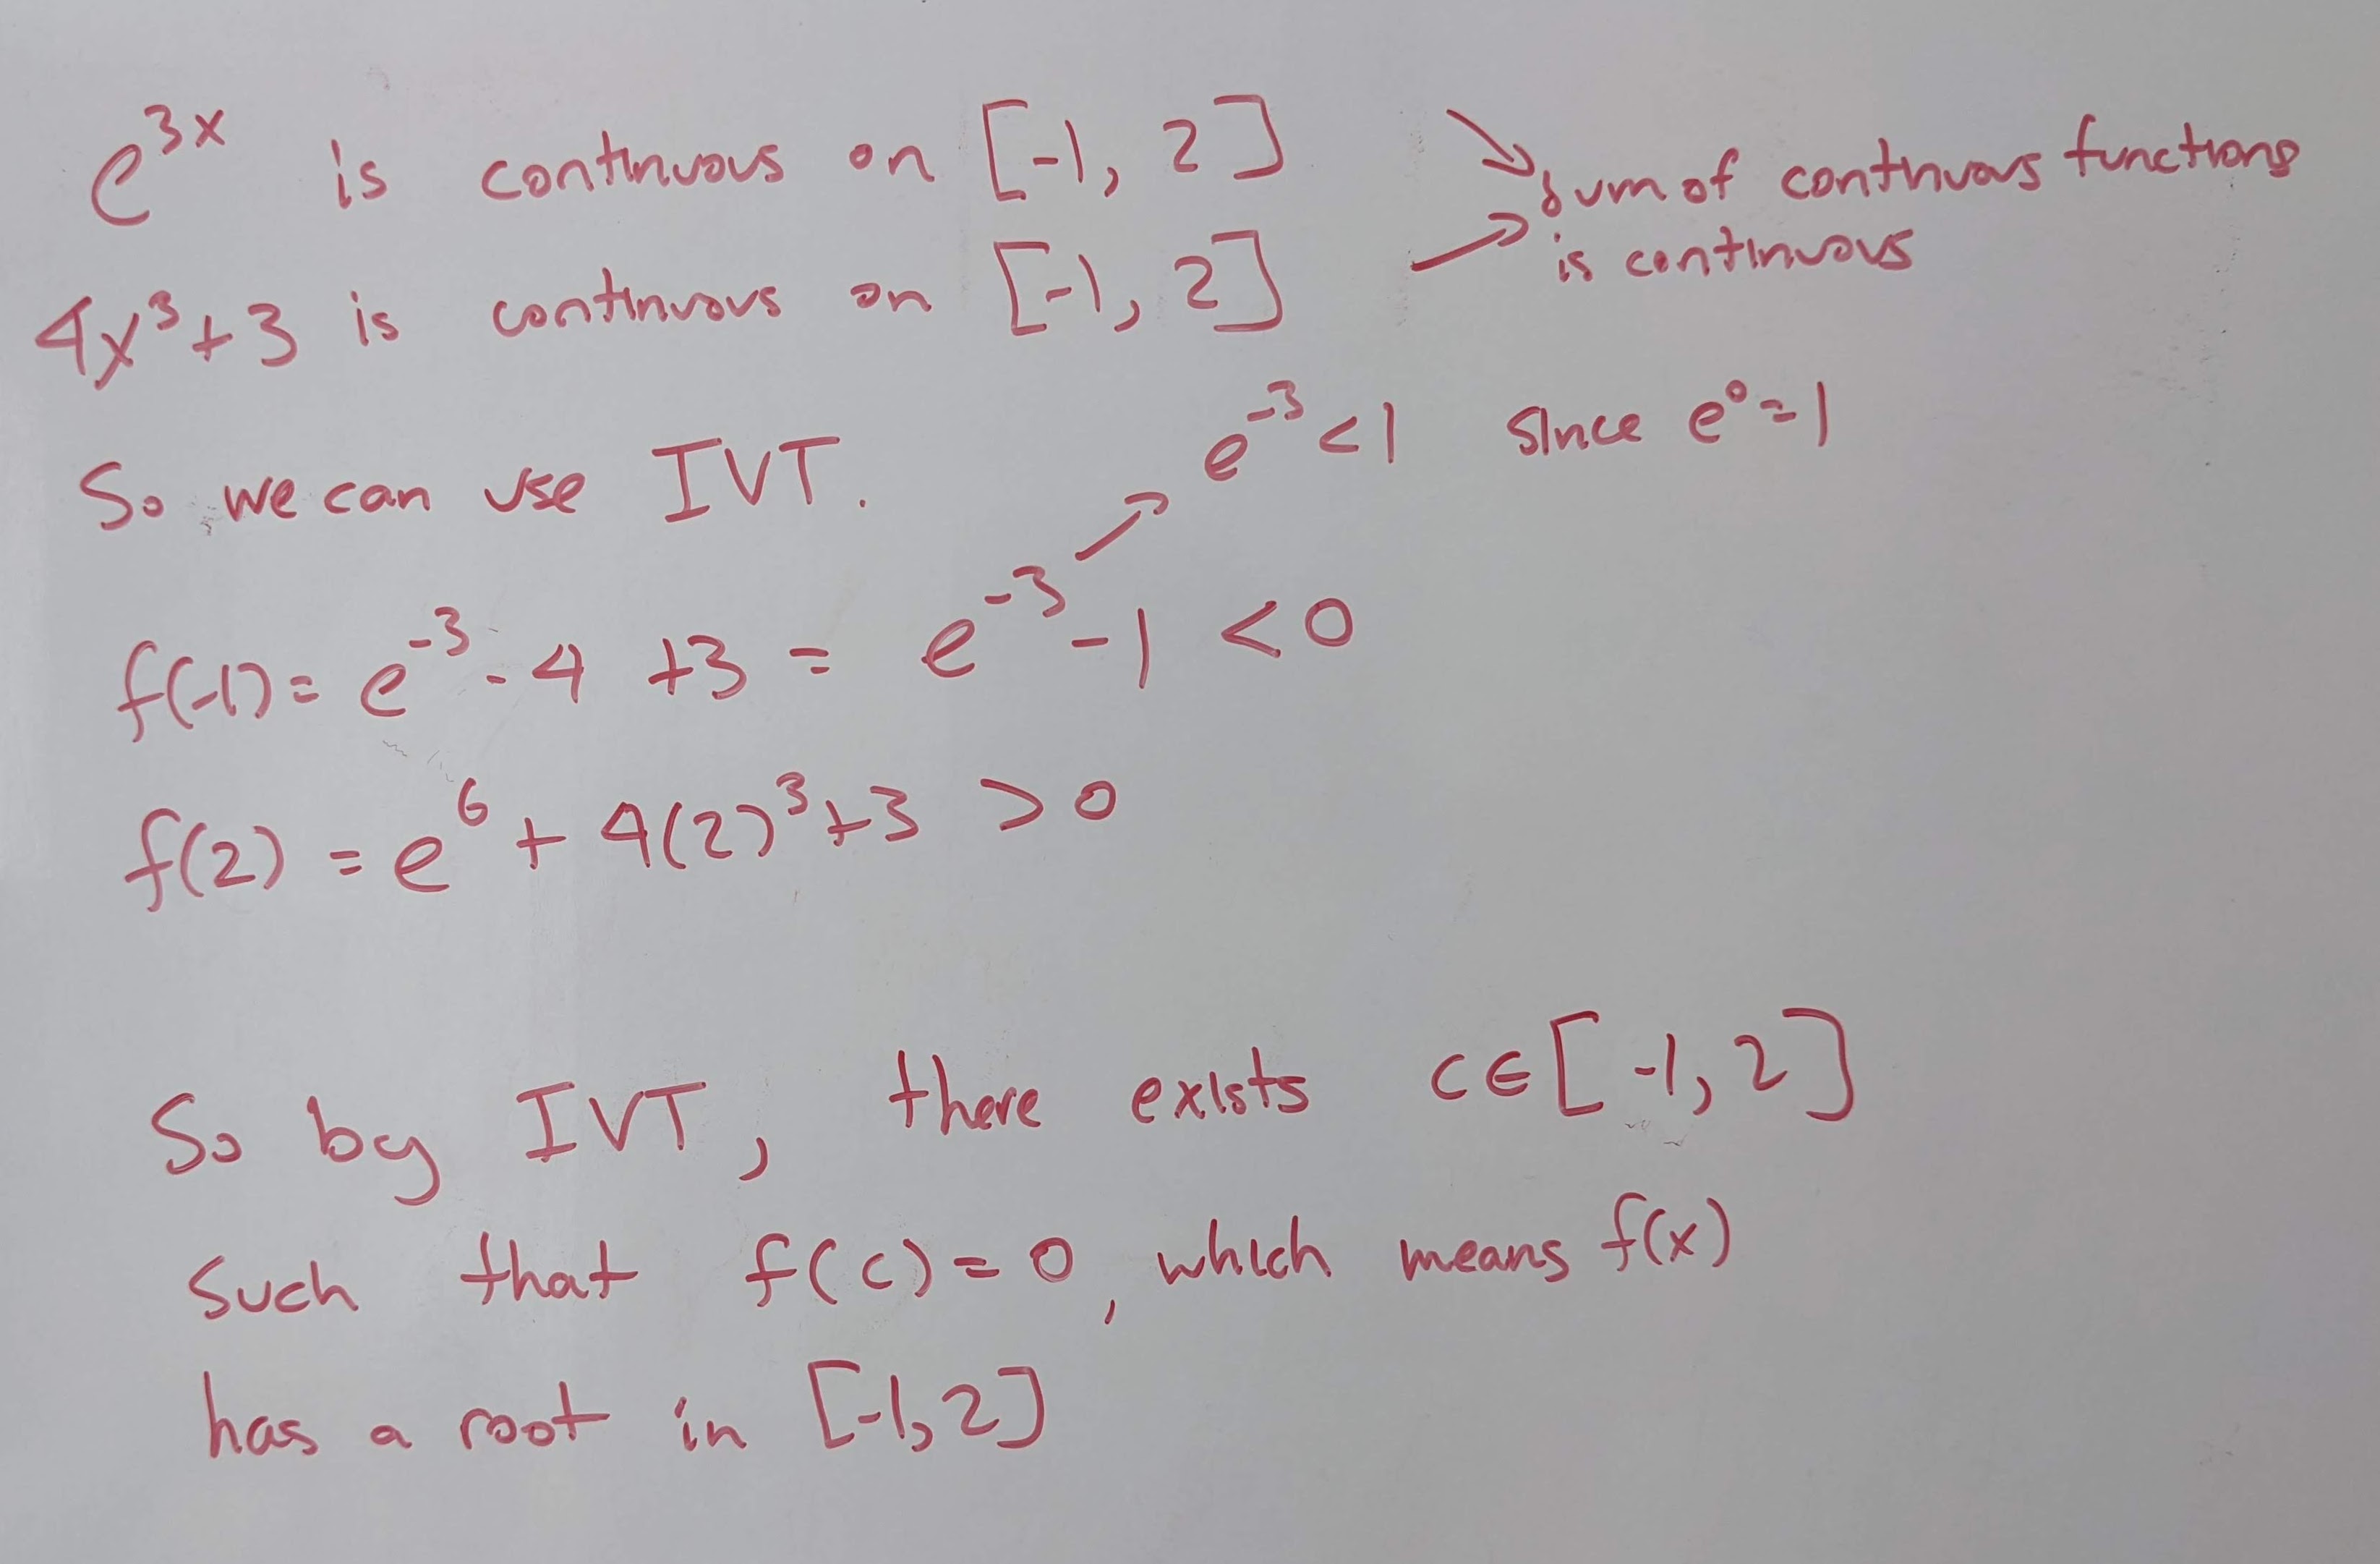 e^{3x} is continuous on [-1, 2] ↘ sum of continuous functions
4x³+3 is continuous on [-1, 2] ↗ is continuous
So we can use IVT.
e^{-3} < 1 since e⁰ = 1
f(-1) = e^{-3} - 4 + 3 = e^{-3} - 1 < 0
f(2) = e⁶ + 4(2)³ + 3 > 0
So by IVT, there exists c ∈ [-1, 2]
such that f(c) = 0, which means f(x)
has a root in [-1, 2]